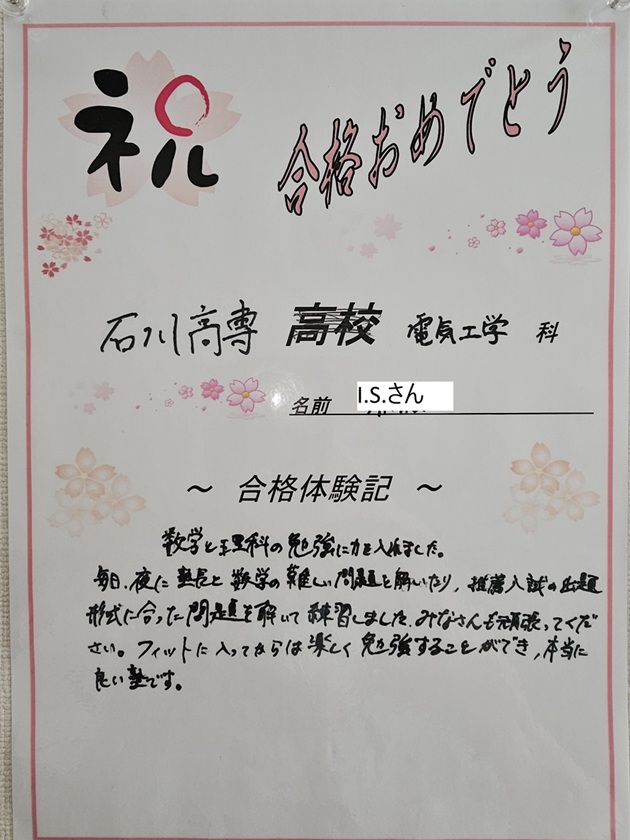 祝
合格おめでとう
石川高専 高校 電気工学 科
名前 I.S.さん
～ 合格体験記 ～
数学と理科の勉強に力を入れました。
毎日、夜に塾長と数学の難しい問題を解いたり、推薦入試の出題
形式に合った問題を解いて練習しました。みなさんも頑張ってくだ
さい。フィットに入ってからは楽しく勉強することができ、本当に
良い塾です。